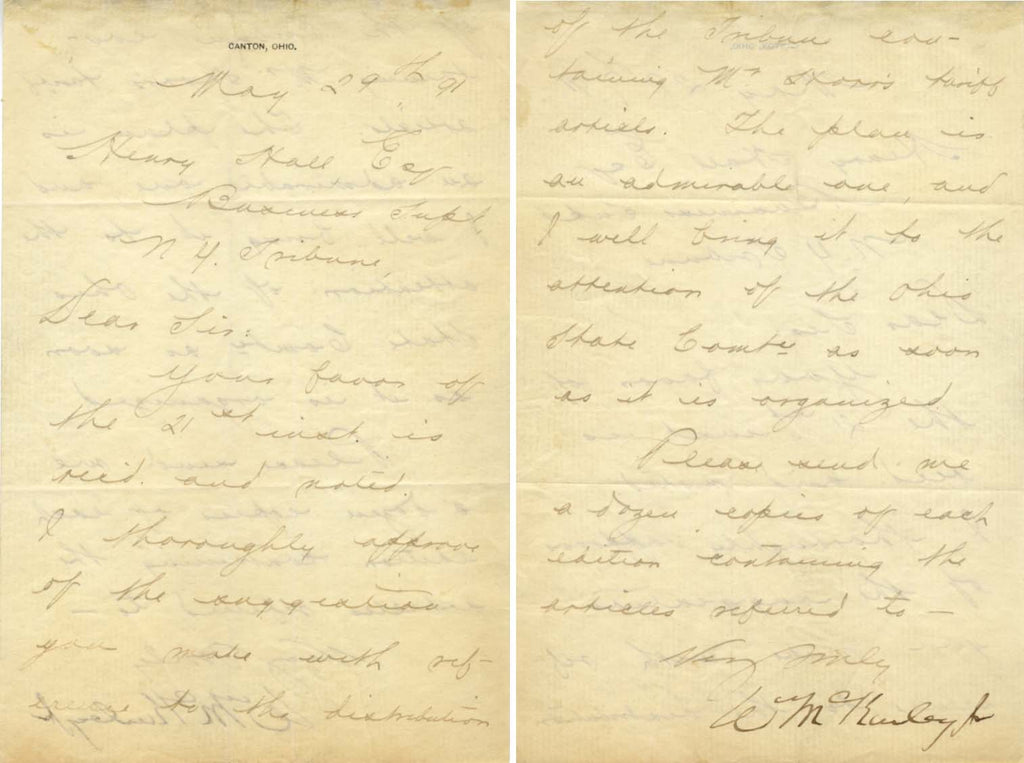 CANTON, OHIO.
May 29th '91
Henry Hall Esq
Business Supt
N.Y. Tribune,
Dear Sir:
Your favor of
the 21st inst. is
rec'd. and noted.
I thoroughly approve
of the suggestion
you make with ref-
erence to the distribution
of the Tribune con-
taining Mr tariff
articles. The plan is
an admirable one, and
I will bring it to the
attention of the Ohio
State Comte as soon
as it is organized
Please send me
a dozen copies of each
edition containing the
articles referred to —
Very Truly
Wm McKinley Jr